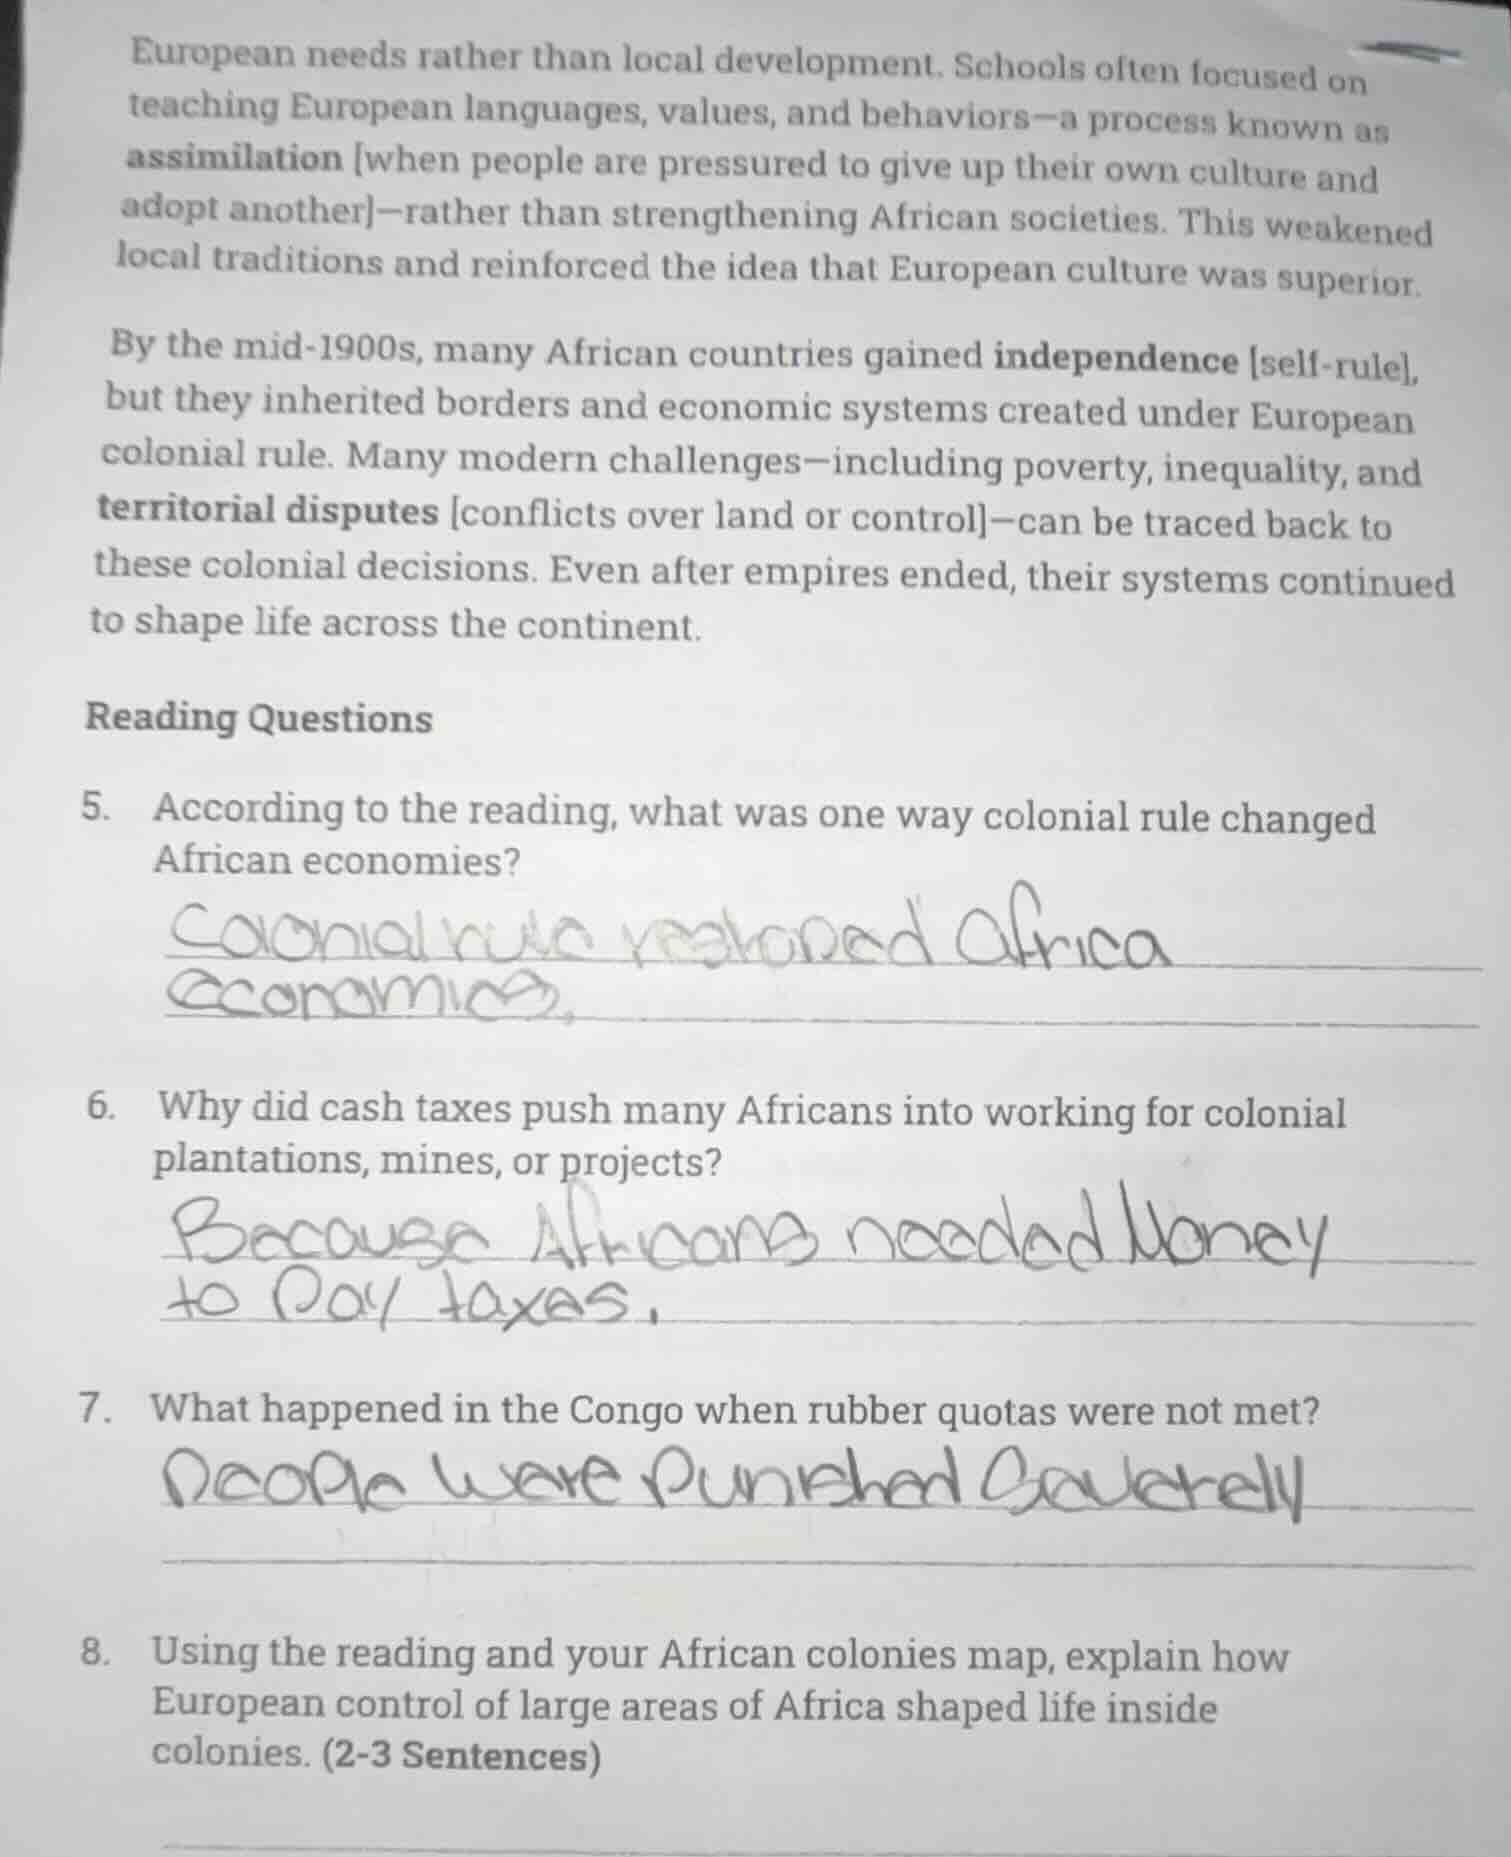 European needs rather than local development. Schools often focused on
teaching European languages, values, and behaviors—a process known as
assimilation [when people are pressured to give up their own culture and
adopt another]—rather than strengthening African societies. This weakened
local traditions and reinforced the idea that European culture was superior.
By the mid-1900s, many African countries gained independence [self-rule],
but they inherited borders and economic systems created under European
colonial rule. Many modern challenges—including poverty, inequality, and
territorial disputes [conflicts over land or control]—can be traced back to
these colonial decisions. Even after empires ended, their systems continued
to shape life across the continent.
Reading Questions
5. According to the reading, what was one way colonial rule changed
African economies?
Colonial rule reshaped Africa
economies.
6. Why did cash taxes push many Africans into working for colonial
plantations, mines, or projects?
Because Africans needed Money
to Pay taxes.
7. What happened in the Congo when rubber quotas were not met?
People were Punished Severely
8. Using the reading and your African colonies map, explain how
European control of large areas of Africa shaped life inside
colonies. (2-3 Sentences)